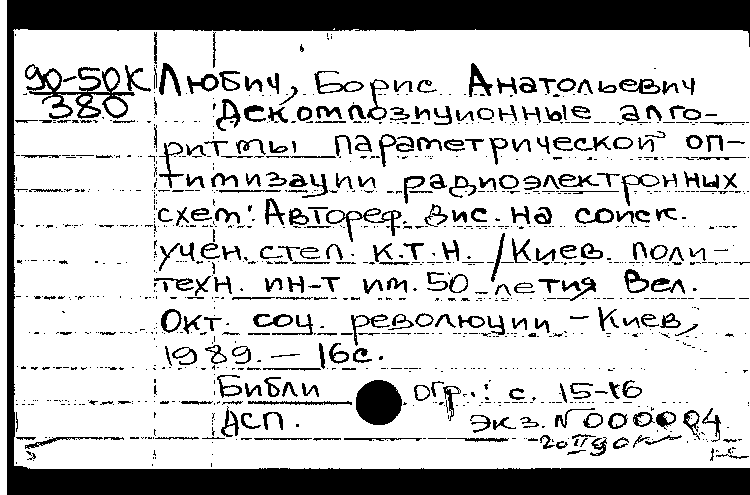 90-50К Любич, Борис Анатольевич
380 Декомпозиционные алго-
ритмы параметрической оп-
тимизации радиоэлектронных
схем: Автореф. дис. на соиск.
учен. степ. к.т.н. /Киев. поли-
техн. ин-т им. 50-летия Вел.
Окт. соц. революции - Киев,
1989. — 16с.
Библи огр.: с. 15-16
ДСП. экз. N 000004
20 II 90